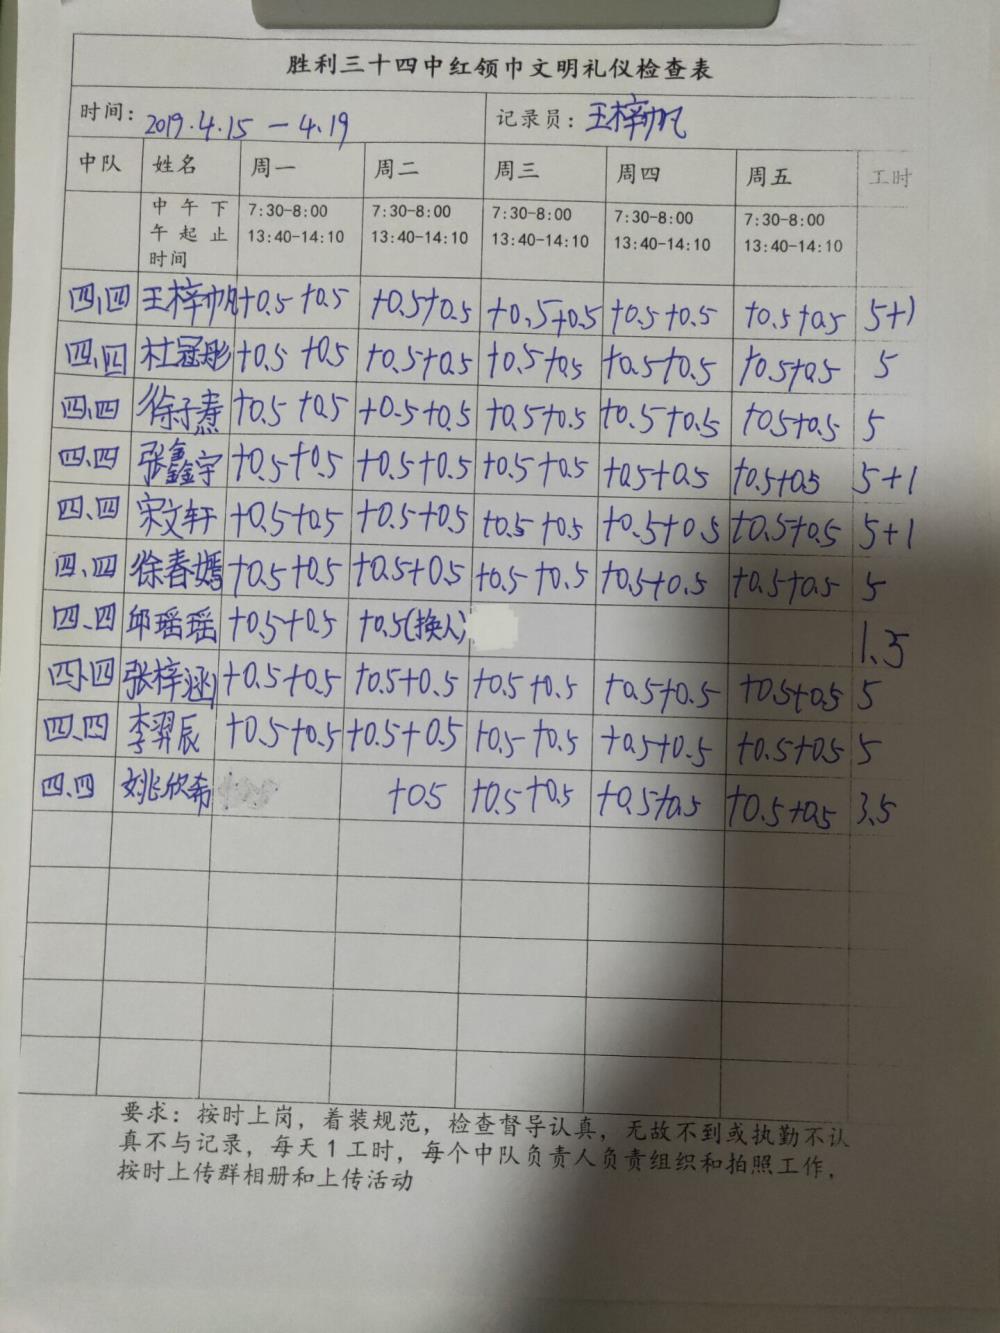 胜利三十四中红领巾文明礼仪检查表
时间: 2019.4.15 — 4.19 记录员: 王梓帆
中队 姓名 周一 周二 周三 周四 周五 工时
中午下午起止时间 7:30-8:00 13:40-14:10 7:30-8:00 13:40-14:10 7:30-8:00 13:40-14:10 7:30-8:00 13:40-14:10 7:30-8:00 13:40-14:10
四、四 王梓帆 +0.5 +0.5 +0.5+0.5 +0.5+0.5 +0.5+0.5 +0.5+0.5 5+1
四、四 杜冠彤 +0.5 +0.5 +0.5+0.5 +0.5+0.5 +0.5+0.5 +0.5+0.5 5
四、四 徐子焘 +0.5 +0.5 +0.5+0.5 +0.5+0.5 +0.5+0.5 +0.5+0.5 5
四、四 张鑫宇 +0.5+0.5 +0.5+0.5 +0.5+0.5 +0.5+0.5 +0.5+0.5 5+1
四、四 宋文轩 +0.5+0.5 +0.5+0.5 +0.5+0.5 +0.5+0.5 +0.5+0.5 5+1
四、四 徐春嫣 +0.5+0.5 +0.5+0.5 +0.5+0.5 +0.5+0.5 +0.5+0.5 5
四、四 邱瑶瑶 +0.5+0.5 +0.5(换人) 1.5
四、四 张梓涵 +0.5+0.5 +0.5+0.5 +0.5+0.5 +0.5+0.5 +0.5+0.5 5
四、四 李羿辰 +0.5+0.5 +0.5+0.5 +0.5+0.5 +0.5+0.5 +0.5+0.5 5
四、四 姚欣希 +0.5 +0.5+0.5 +0.5+0.5 +0.5+0.5 3.5
要求: 按时上岗, 着装规范, 检查督导认真, 无故不到或执勤不认
真不与记录, 每天1工时, 每个中队负责人负责组织和拍照工作,
按时上传群相册和上传活动